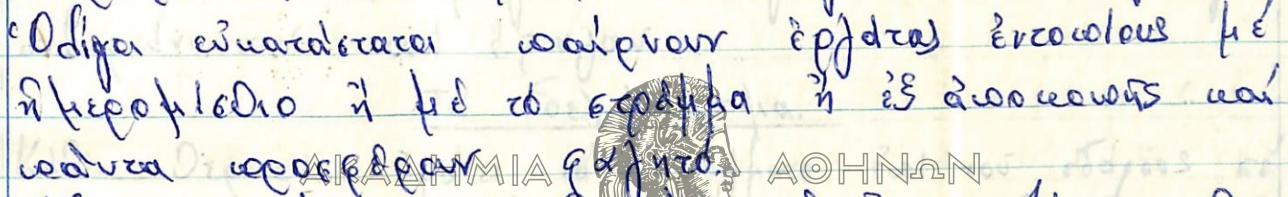 Ὀλίγοι εὐκατάστατοι παίρνουν ἐργάτας ἐντοπίους μέ
ἡμερομίσθιο ἤ μέ τό στρέμμα ἤ ἐξ ἀποκοπῆς καί
πάντα προσφέρουν φαγητό.
ΑΚΑΔΗΜΙΑ ΑΘΗΝΩΝ